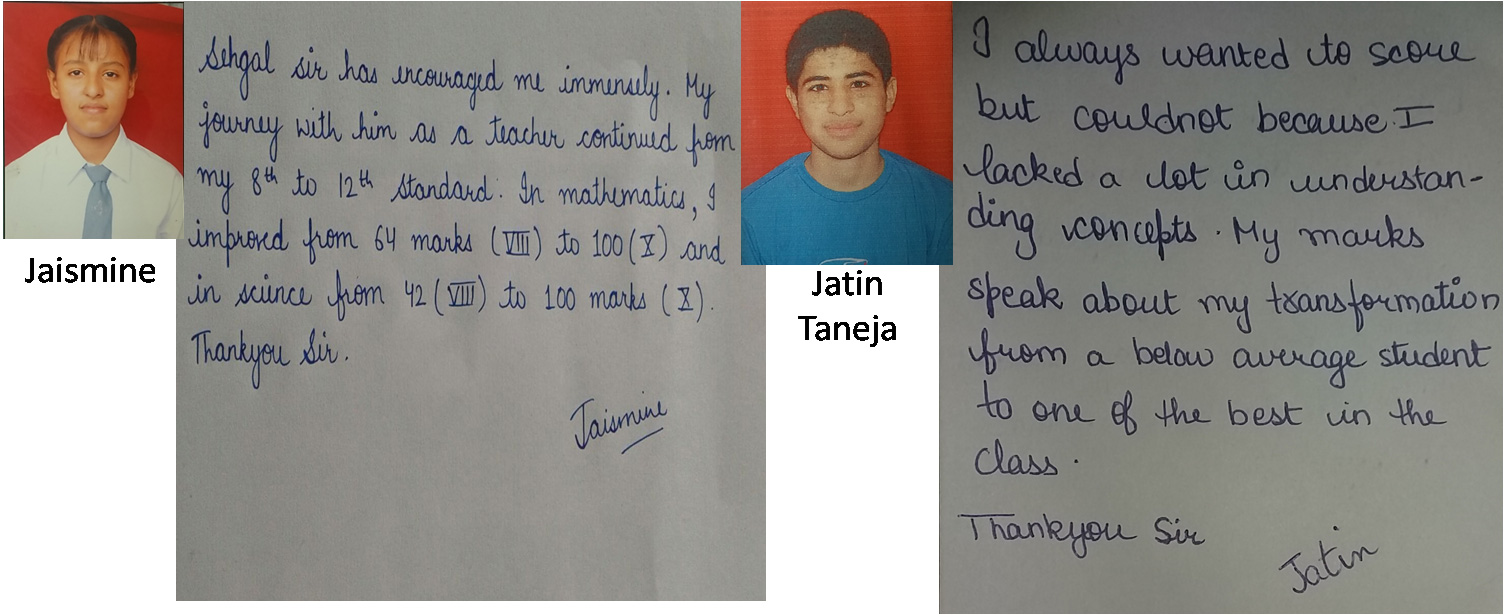 Sehgal sir has encouraged me immensely. My
journey with him as a teacher continued from
my 8th to 12th standard. In mathematics, I
improved from 64 marks (VIII) to 100 (X) and
in science from 42 (VIII) to 100 marks (X).
Thankyou Sir.
Jaismine
Jaismine
I always wanted to score
but couldnot because I
lacked a lot in understan-
ding concepts. My marks
speak about my transformation
from a below average student
to one of the best in the
class.
Thankyou Sir
Jatin
Jatin
Taneja